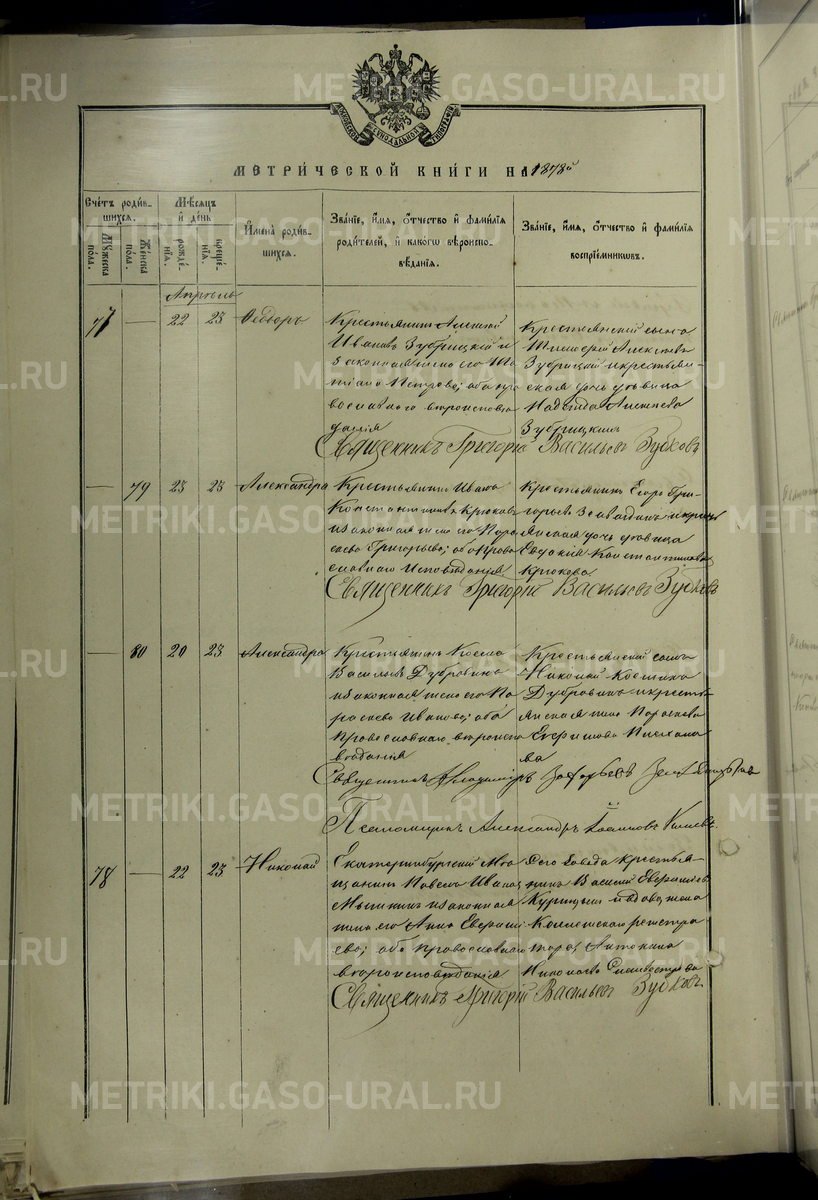 МЕТРИ́ЧЕСКОЙ КНИ́ГИ НА 1878й
Сче́тъ роди́в-
шихся.
Му́жеска
по́ла.
Же́нска
по́ла.
Мѣ́сяцъ
и҆ де́нь
рожде́-
нїѧ.
креще́-
нїѧ.
И҆мена̀ роди́в-
шихся.
Зва́нїе, и҆́мя, о҆́тчество и҆ фами́лїя
роди́телей, и҆ како́гѡ вѣроиспо-
вѣ́данїя.
Зва́нїе, и҆́мя, о҆́тчество и҆ фами́лїя
воспрїе́мникѡвъ.
Апрѣль
77 — 22 23 Ѳедоръ
Крестьянинъ Алексѣй
Ивановъ Зубрицкій и
законная жена его Та-
тіана Петрова; оба пра
вославнаго вѣроисповѣ
данія
Крестьянскій сынъ
Тимоѳей Алексѣевъ
Зубрицкій и крестьян-
ская дочь дѣвица
Надежда Алексѣева
Зубрицкихъ
Священникъ Григорій Васильевъ Зубковъ
— 79 23 23 Александра
Крестьянинъ Иванъ
Константиновъ Крюковъ
и законная жена его Пара
скева Григорьева; оба право
славнаго исповѣданія
Крестьянинъ Егоръ Гри-
горьевъ и крестьь
янская дочь дѣвица
Евдокія Константинова
Крюкова
Священникъ Григорій Васильевъ Зубковъ
— 80 20 23 Александра
Крестьянинъ Косма
Васильевъ Дубровинъ
и законная жена его Па
раскева Иванова; оба
православнаго вѣроиспо
вѣданія
Крестьянскій сынъ
Николай Косминъ
Дубровинъ и кресть
янская жена Параскева
Ефримова
ва
Священникъ Владиміръ
Псаломщикъ Александръ Іоанновъ
78 — 22 23 Николай
Екатеринбургскій мѣ
щанинъ Павелъ Иванов
Мышкинъ и законная
жена его Анна Еверши
ева; оба православнаго
вѣроисповѣданія
Сего завода крестья-
нинъ Василій
Курицынъ и вдова жена
Коллежскаго регистра
тора Антонина
Николаева
Священникъ Григорій Васильевъ Зубковъ
METRIKI.GASO-URAL.RU